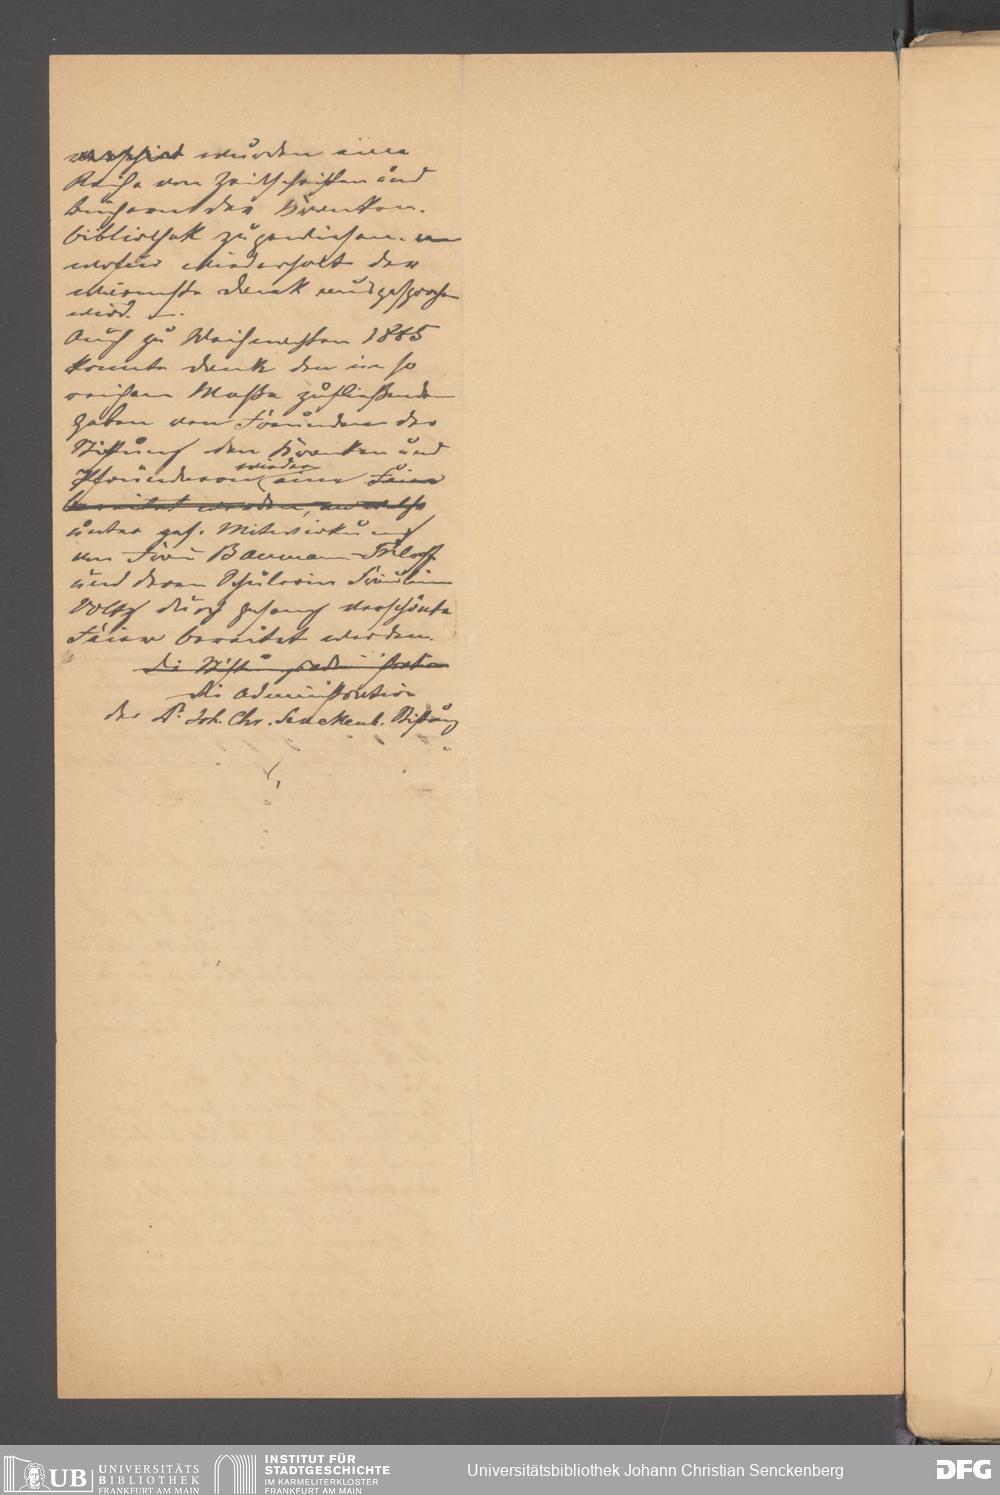 wurden eine
Reihe von Zeitschriften und
Büchern der Kranken-
bibliothek zugewiesen.
wofür wiederholt der
wärmste Dank ausgesprochen
wird. —.
Auch zu Weihnachten 1885
konnte dank den in so
reichem Maße zufließenden
Gaben von Freunden der
Stiftung den Kranken und
Pfründnern wieder eine Feier
bereitet werden, welche
unter gef. Mitwirkung
von Frau Baumann-
und deren Schülerin Fräulein
Voltz durch Gesang verschönte
Feier bereitet werden.
die Stiftungsadministration
die Administration
der Dr. Joh. Chr. Senckenb. Stiftung
UB UNIVERSITÄTS
BIBLIOTHEK
FRANKFURT AM MAIN
INSTITUT FÜR
STADTGESCHICHTE
IM KARMELITERKLOSTER
FRANKFURT AM MAIN
Universitätsbibliothek Johann Christian Senckenberg
DFG